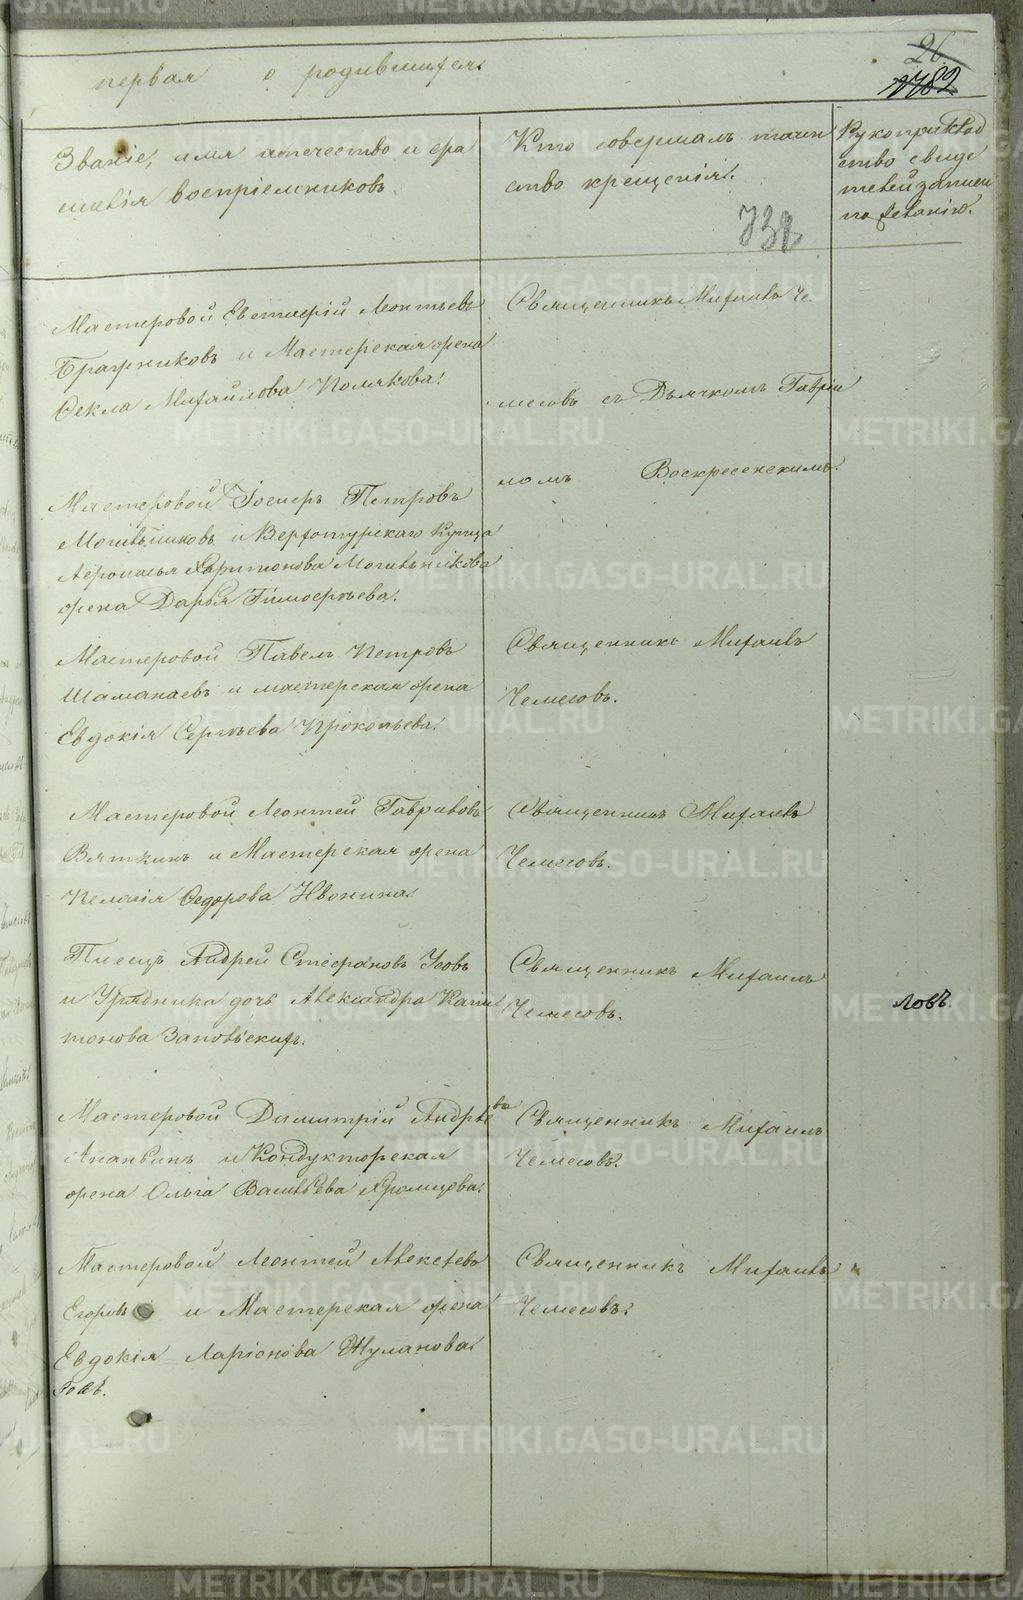 первая о родившихся
26
1782
Званіе, имя отечество и фа
милія воспріемниковъ.
Кто совершалъ таин
ство крещенія.
Рукоприклад
ство свиде
телей записи
по желанію.
732
Мастеровой Евстафій Леонтьевъ
Бражниковъ и Мастерская жена
Фекла Михайлова Полякова.
Священникъ Михаилъ Че
месовъ съ Дьячкомъ Гаврі
ломъ Воскресенскимъ.
Мастеровой Іосифъ Петровъ
Могильниковъ и Верхотурскаго Купца
Афонасья Харитонова Могильникова
жена Дарья Тимофеева.
Мастеровой Павелъ Петровъ
Шаманаевъ и мастерская жена
Евдокія Сергѣева Прокопьева.
Священникъ Михаилъ
Чемесовъ.
Мастеровой Леонтей Гавриловъ
Вяткинъ и Мастерская жена
Пелагія Федорова Ивонина.
Священникъ Михаилъ
Чемесовъ.
Писецъ Андрей Стефановъ Усовъ
и Урядника дочь Александра Капи
тонова
Священникъ Михаилъ
Чемесовъ.
ловъ.
Мастеровой Димитрій Андреевъ
Ананьинъ и Кондукторская
жена Ольга Васильева Хромцова.
Священникъ Михаилъ
Чемесовъ.
Мастеровой Леонтей Алексѣевъ
Егоровъ и Мастерская жена
Евдокія Ларіонова Жуланова
Священникъ Михаилъ
Чемесовъ.
METRIKI.GASO-URAL.RU